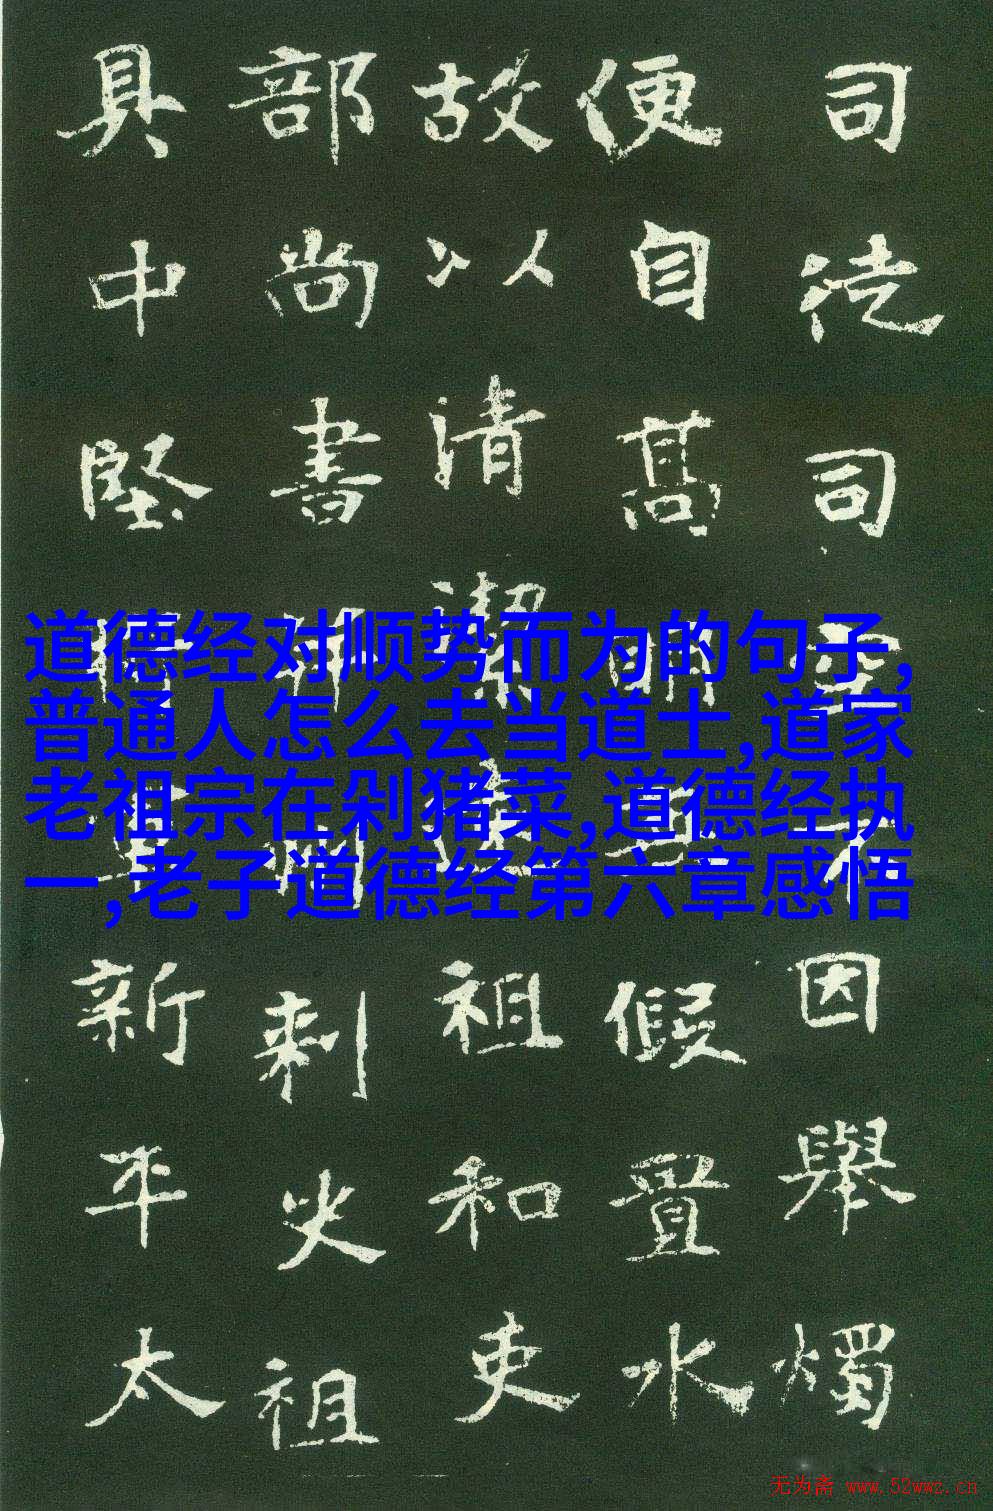 司徒司空因舉燭
便自高明假置水
故以清潔祖和吏
部尚書刺史祖
具中堅新平太
道德经对顺势而为的句子,
普通人怎么去当道士,道家
老祖宗在剁猪菜,道德经执
一,老子道德经第六章感悟
无为斋 www.52wwz.cn